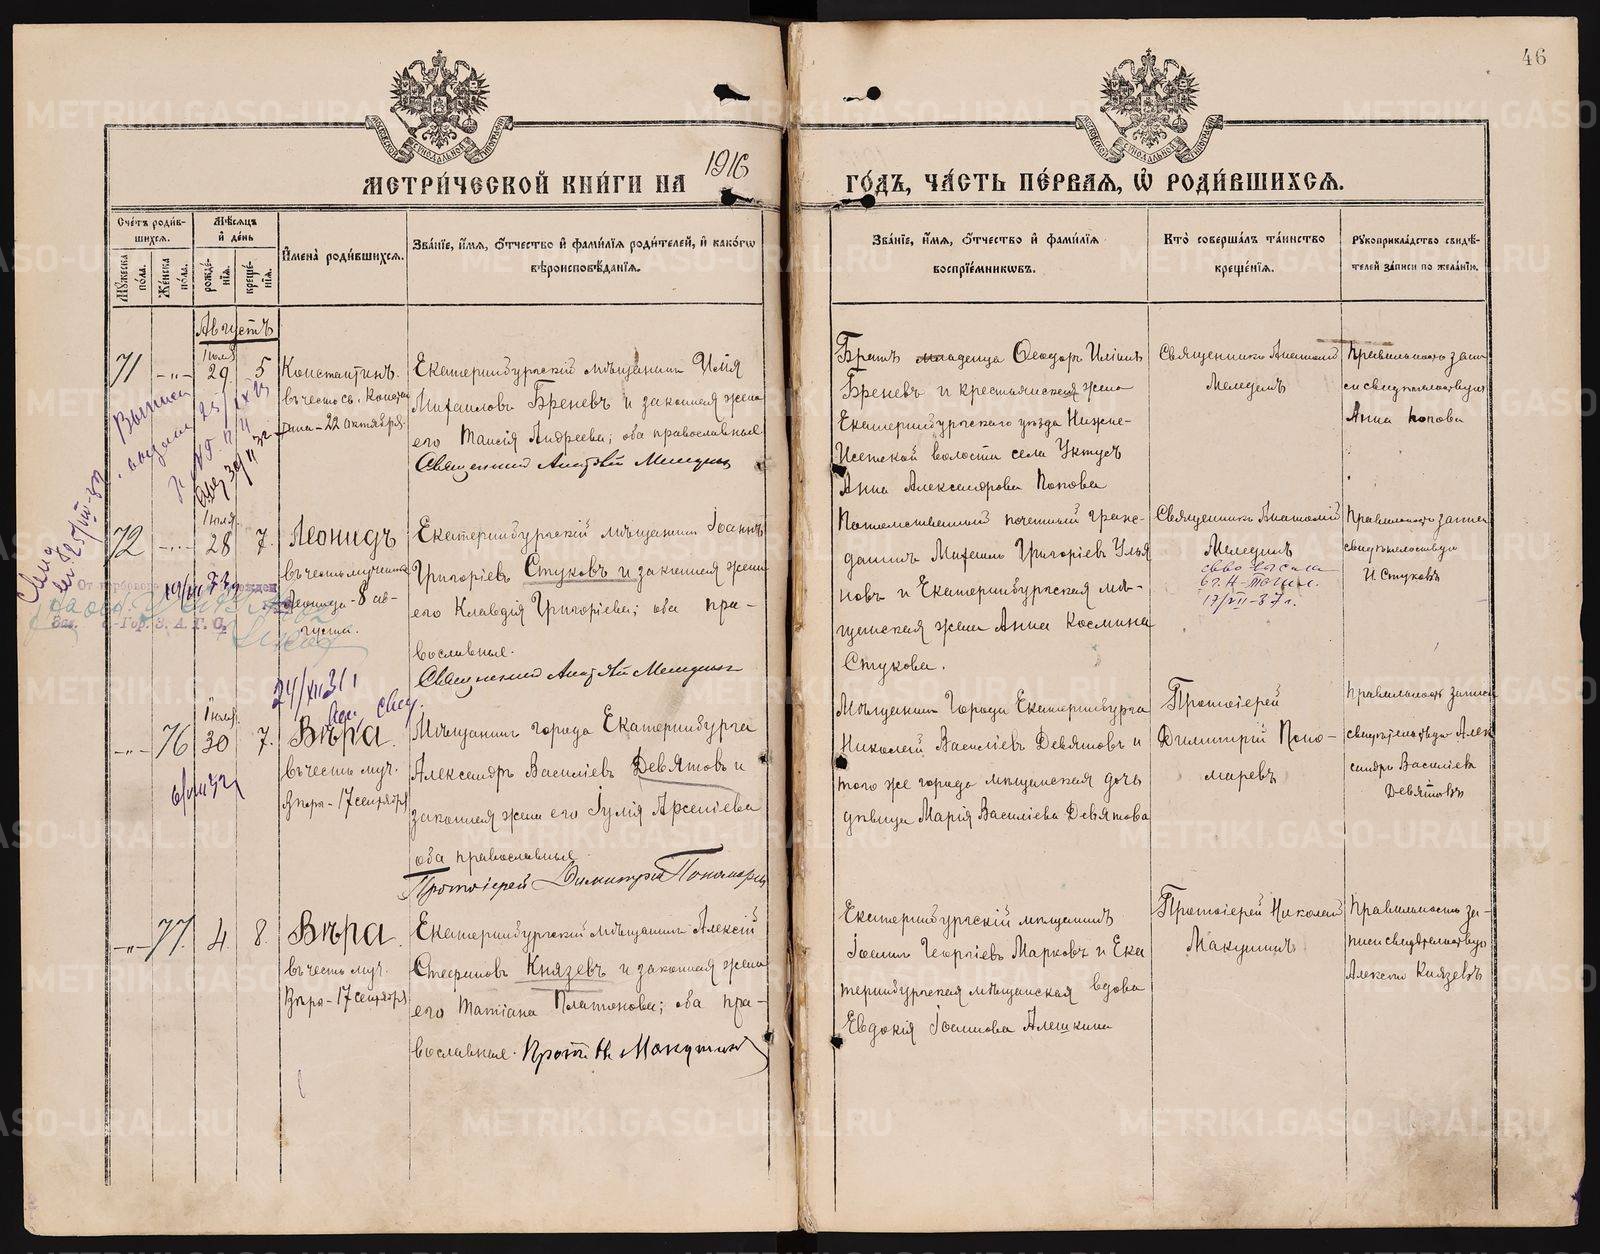 46
МЕТРИ́ЧЕСКОЙ КНИ́ГИ НА 1916 ГО́ДЪ, ЧА́СТЬ ПЕ́РВАЯ, Ѡ РОДИ́ВШИХСЯ.
Сче́тъ роди́в-
шихся.
Мѣ́сяцъ
и́ де́нь
Му́жеска
по́ла.
Же́нска
по́ла.
рожде́-
нія.
креще́-
нія.
И҆мена̀ роди́вшихся.
Зва́нїе, и҆́мя, ѻ҆́тчество и҆ фами́лїя роди́телей, и҆ како́гѡ
вѣроисповѣ́данїя.
Зва́нїе, и҆́мя, ѻ҆́тчество и҆ фами́лїя
воспрїе́мникѡвъ.
Кто̀ соверша́лъ та́инство
креще́нїя.
Рукоприкла́дство свидѣ́-
телей за́писи по жела́нїю.
Августъ
71
Іюля
29
5
Константинъ.
въ честь св. Констан
тина - 22 октября.
Екатеринбургскій мѣщанинъ Илія
Михаиловъ Бреневъ и законная жена
его Таисія Андреева; оба православные.
Священникъ Анатолій Мегедынъ
Братъ младенца Ѳеодоръ Иліинъ
Бреневъ и крестьянская жена
Екатеринбургскаго уѣзда Нижне-
Исетской волости села Уктусъ
Анна Александрова Попова
Священникъ Анатолій
Мегединъ
Правильность запи
си свидѣтельствую
Анна Попова
72
Іюля
28
7.
Леонидъ
въ честь мученика
Леонида - 8 ав-
густа.
Екатеринбургскій мѣщанинъ Іоаннъ
Григоріевъ Стуковъ и законная жена
его Клавдія Григоріева; оба пра-
вославные.
Священникъ Анатолій Мегедынъ
Потомственный почетный граж-
данинъ Михаилъ Григоріевъ Улья
новъ и Екатеринбургская мѣ-
щанская жена Анна Космина
Стукова.
Священникъ Анатолій
Мегединъ
17/VII-37 г.
Правильность записи
свидѣтельствую
И Стуковъ
24/XII 31 г
76
Іюля
30
7.
Вѣра.
въ честь муч.
Вѣры - 17 сентября
Мѣщанинъ города Екатеринбурга
Александръ Василіевъ Девятовъ и
законная жена его Іулія Арсеніева
оба православные.
Протоіерей Димитрій Пономаревъ
Мѣщанинъ города Екатеринбурга
Николай Василіевъ Девятовъ и
того же города мѣщанская дочь
дѣвица Марія Василіева Девятова
Протоіерей
Димитрій Поно-
маревъ
Правильность записи
свидѣтельствую Алек
сандръ Василіевъ
Девятовъ
77.
4.
8.
Вѣра.
въ честь муч.
Вѣры - 17 сентября
Екатеринбургскій мѣщанинъ Алексій
Стефановъ Князевъ и законная жена
его Татіана Платонова; оба пра-
вославные. Прот. Н. Макушинъ
Екатеринбургскій мѣщанинъ
Іоаннъ Георгіевъ Марковъ и Ека
теринбургская мѣщанская вдова
Евдокія Іоаннова Алешкина
Протоіерей Николай
Макушинъ
Правильность за-
писи свидѣтельствую
Алексей Князевъ